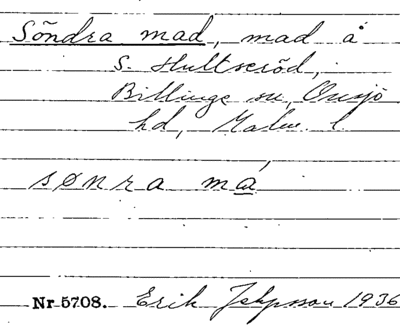 Söndra mad, mad å
S. Hultseröd,
Billinge sn, Onsjö
hd, Malm. l.
sønra má
Nr 5708. Erik Jeppsson 1936